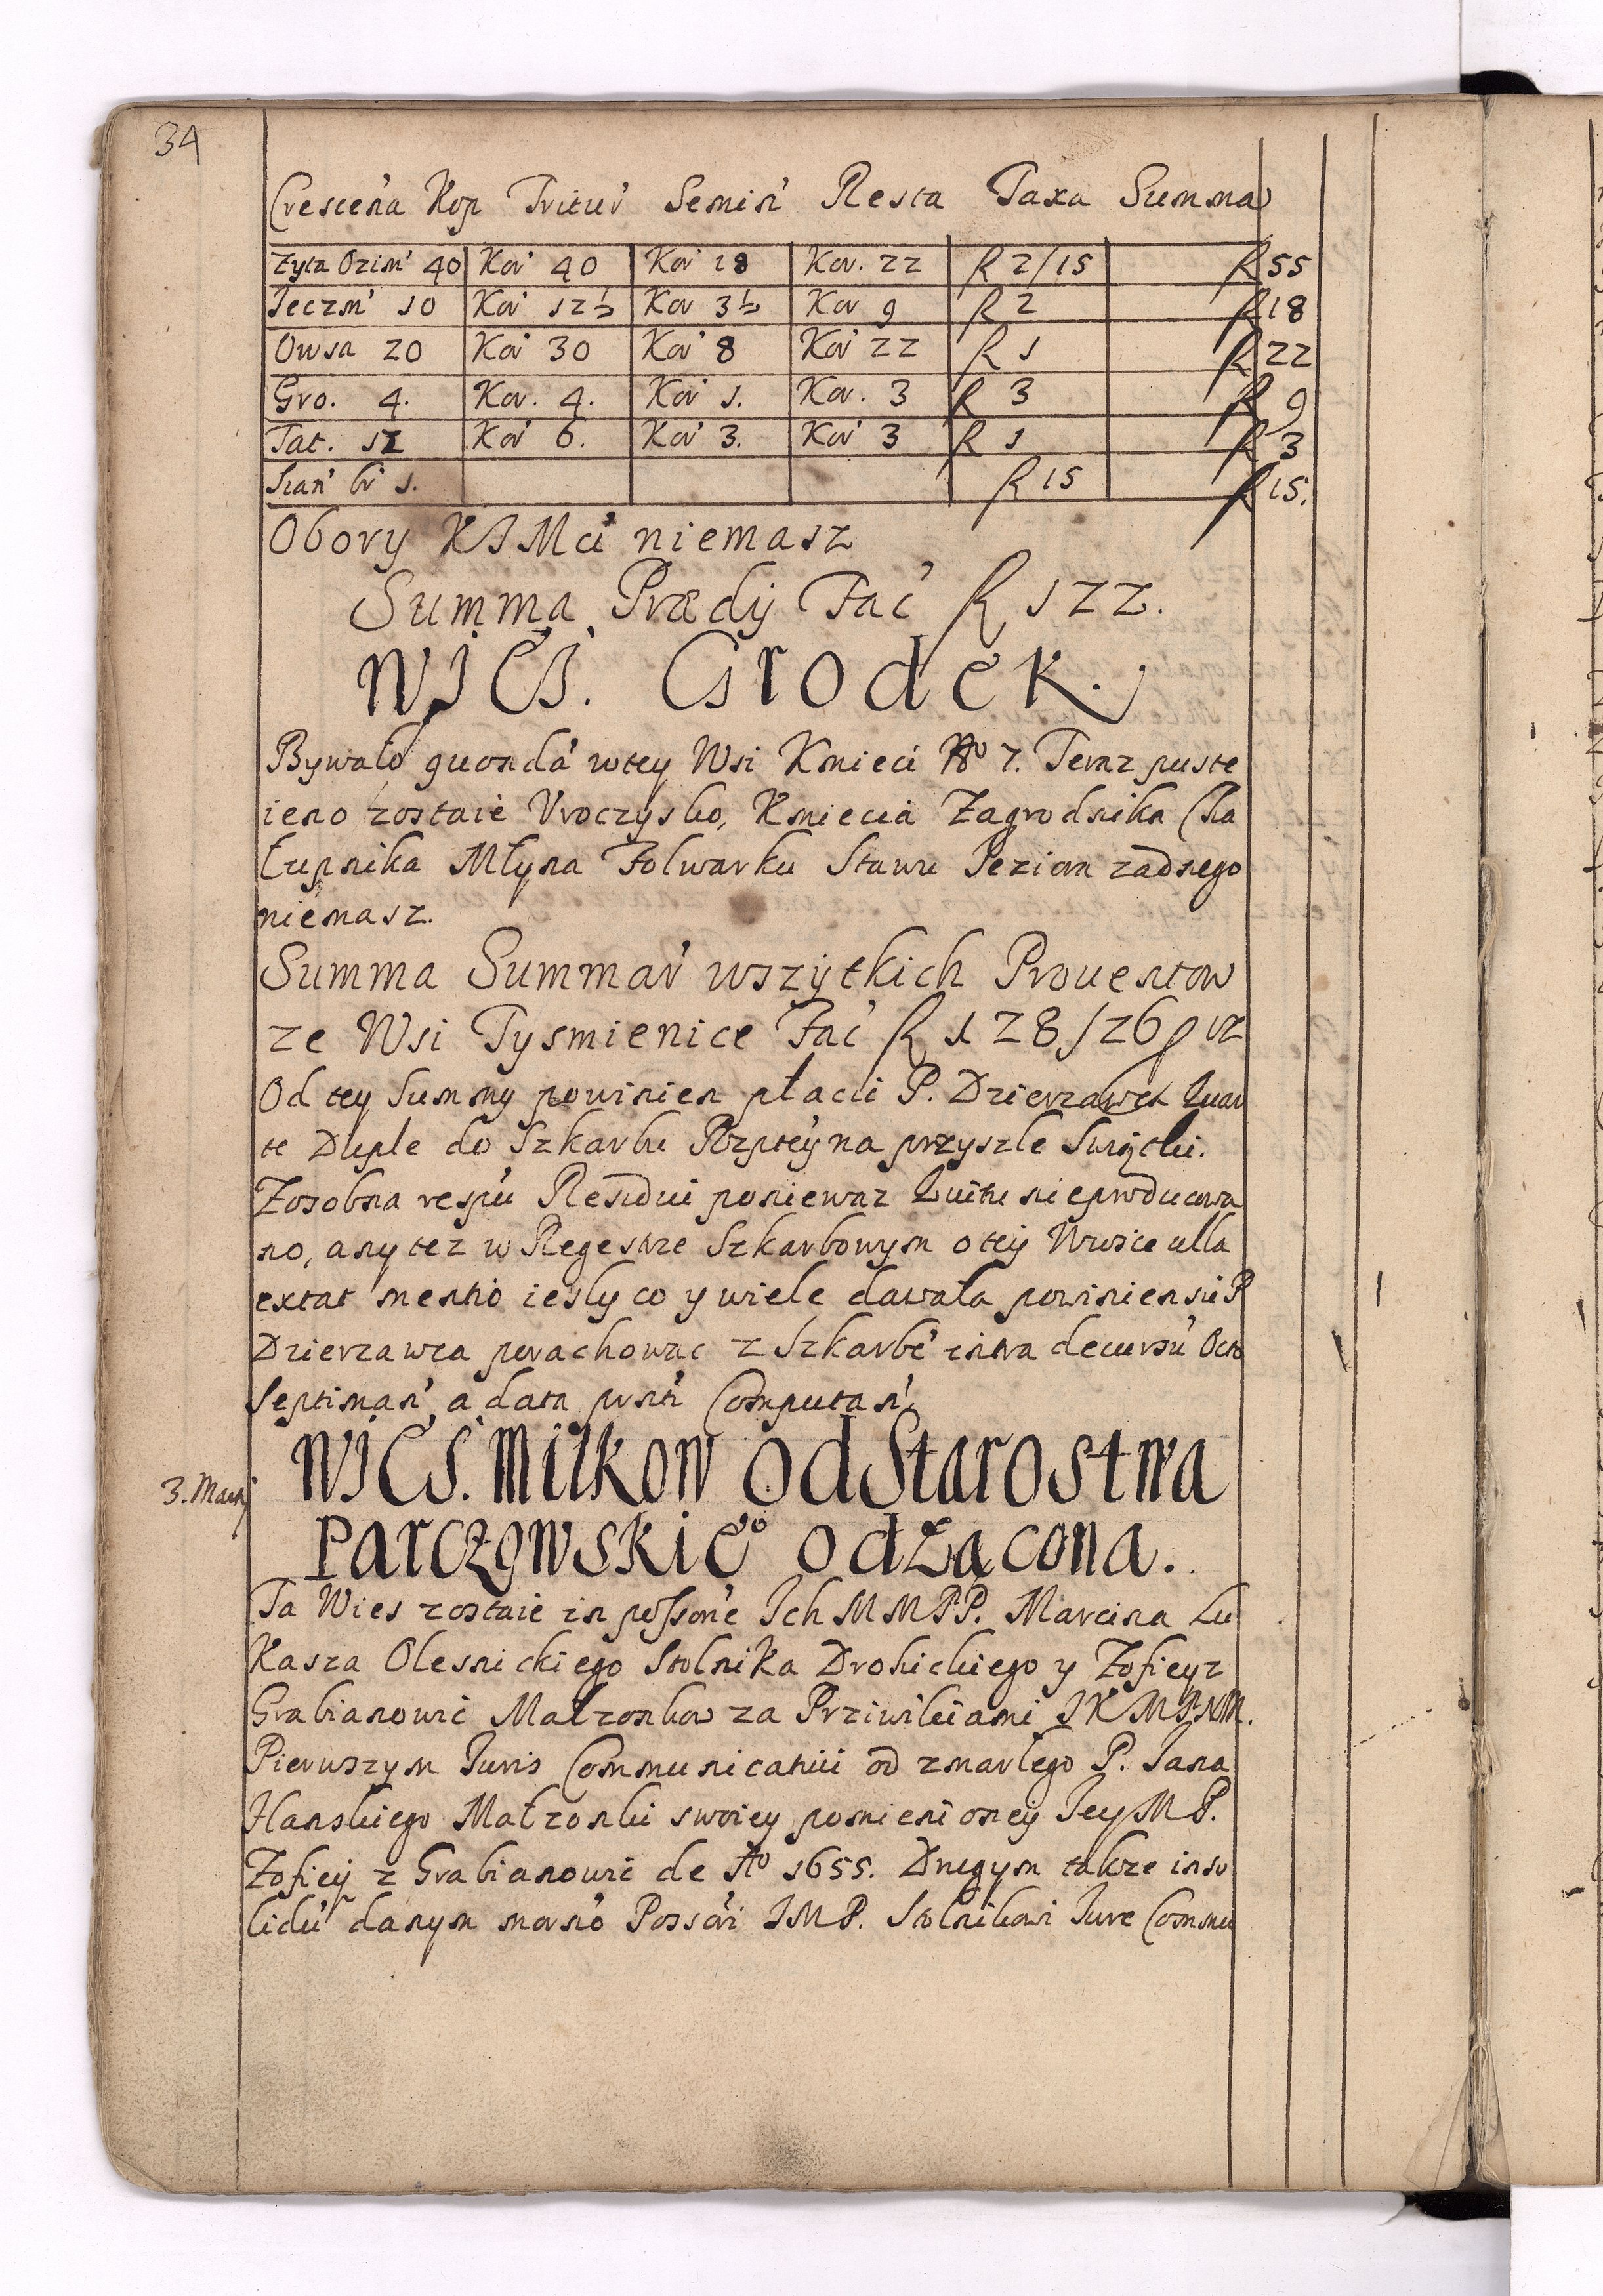 34
Crescen̄a Kop Tritur̄ Semin̄ Resta Taxa Summa
Zyta Ozim̄ 40 Kor̄ 40 Kor̄ 18 Kor. 22 R 2/15 R 55
Jeczm̄ 10 Kor̄ 12½ Kor 3½ Kor 9 R 2 R 18
Owsa 20 Kor̄ 30 Kor̄ 8 Kor̄ 22 R 1 R 22
Gro. 4. Kor. 4. Kor̄ 1. Kor. 3 R 3 R 9
Tat. 12 Kor̄ 6. Kor̄ 3. Kor̄ 3 R 1 R 3
Sian̄ br̄ 1. R 15 R 15.
Obory KJMci niemasz
Summa Prædij Fac̄ R 122.
WIEŚ. Grodek.
Bywało quondā wtey Wsi Kmieci No 7. Teraz puste
ieno zostaie Vroczysko, Kmiecia Zagrodnika Cha
łupnika Młyna Folwarku Stawu Jeziora zadnego
niemasz.
Summa Summar̄ wszytkich Prouentow
ze Wsi Tysmienice Fac̄ R 128/26 ρ 12
Od tey Summy powinien płacić P. Dzierzawca Quar
te Duple do Szkarbu Rzptey na przyszłe Swiątki.
Zosobna respū Residui poniewaz Quitu nieproducowa
no, any tez w Regestrze Szkarbowym o tey Wiosce ulla
extat mentio iesly co y wiele dawała powinien się P
Dzierzawca porachowac z Szkarbē intra decursū Octo
Septiman̄ a data prnti Computan̄.
3. Martij
WIEŚ. Miłkow od Starostwa
Parczowskie° odłącona.
Ta Wies zostaie in possone Ich MMPP. Marcina Łu
kasza Olesnickiego Stolnika Drohickiego y Zofiey z
Grabianowic Małzonkow za Prziwileiami JKMPNM.
Pierwszym Juris Communicatiui od zmarłego P. Jana
Hanskiego Małzonki swoiey pomienioney Jey MP.
Zofiey z Grabianowic de Ao 1655. Drugym takze inso
lidū danym mōrnō Possōri JMP. Stolnikowi Jure Commu